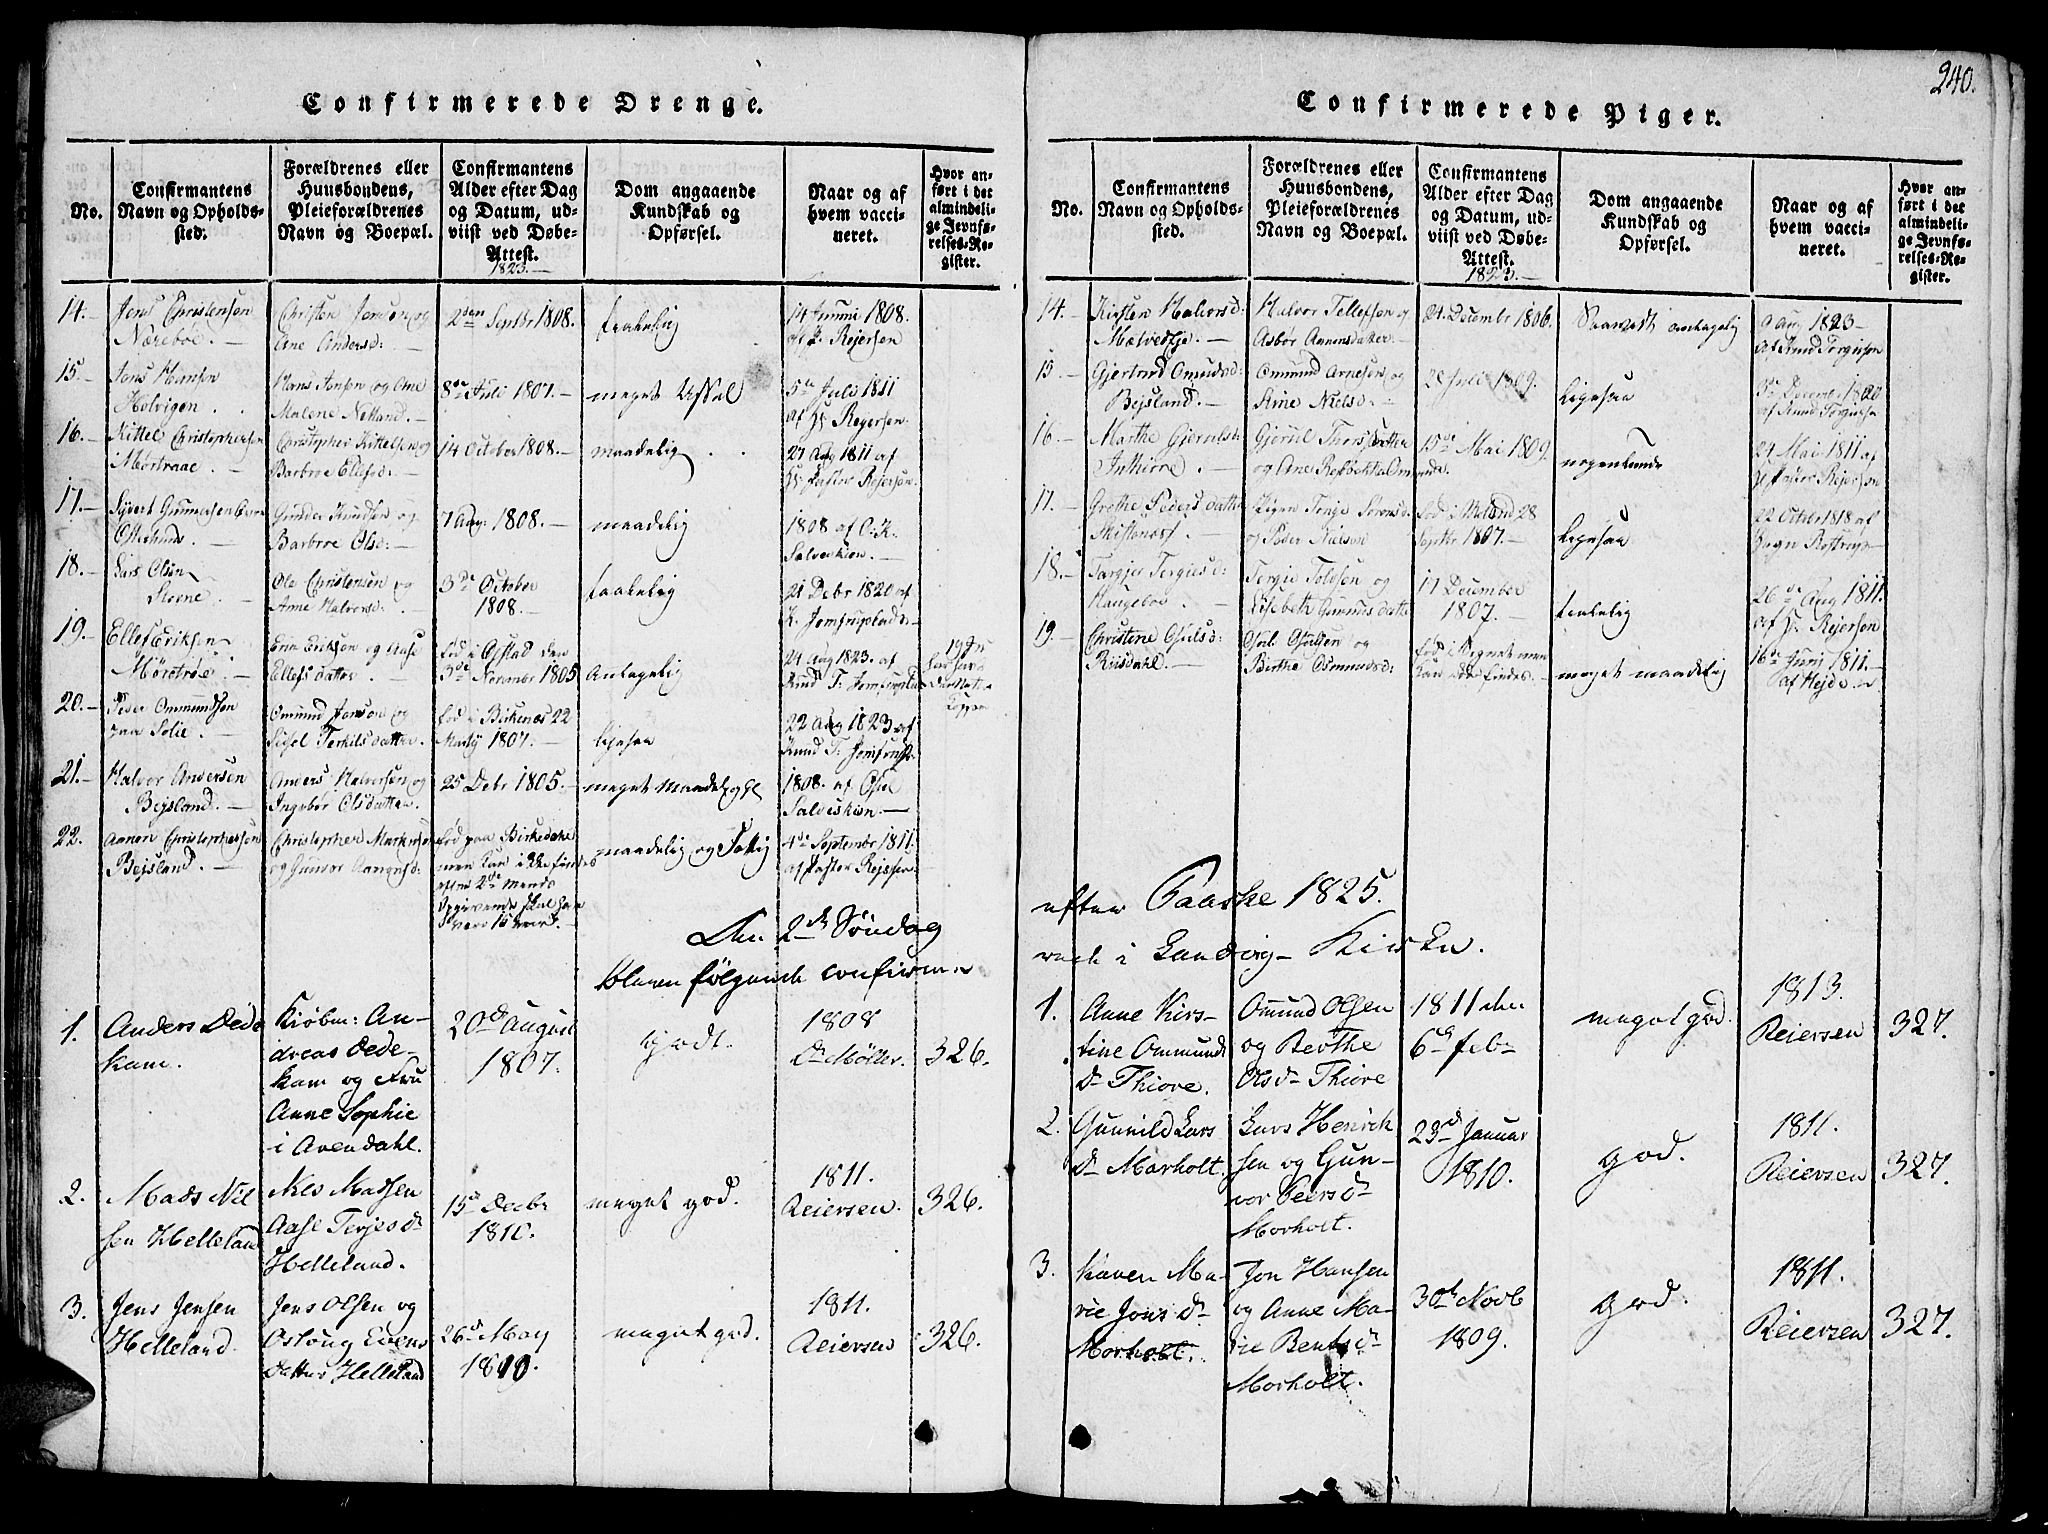 240.
Confirmerede Drenge.
No.
Confirmantens
Navn og Opholds-
sted.
Forældrenes eller
Huusbondens,
Pleieforældrenes
Navn og Boepæl.
Confirmantens
Alder efter Dag
og Datum, ud-
viist ved Døbe-
Attest.
1823.
Dom angaaende
Kundskab og
Opførsel.
Naar og af
hvem vacci-
neret.
Hvor an-
ført i det
almindeli-
ge Jevnfø-
relses-Re-
gister.
14.
Jens Christensen
Næreboe.
Christen Jensen og
Ane Andersd:
2den Septbr 1808.
taalelig
14 Junni 1808.
af P. Rejersen
15.
Jens Hansen
Holvigen
Hans Jensen og Ane
Malene Netland.
8de Juli 1807.
meget Ussel
5te Juli 1811
af P. Rejersen.
16.
Kittel Christophersen
Mørtraae
Christopher Kittelsen og
Barbroe Ellefsd:
14 October 1808.
maadelig
27 Aug 1811 af
Hr Pastor Rejersen.
17.
Syvert Gundersen
Gunder Knudsen og
Barbroe Olsd:
7 Aug: 1808.
maadelig
1808 af O. K.
Salveskien.
18.
Lars Olsen
Steene.
Ole Christensen og
Anne Halvorsd:
3de October
1808.
taalelig
21 Debr 1820 af
K. Jomfrupland
19.
Ellef Eriksen
Mørtrøe.
Erik Eriksen og Aase
Ellefsdatter
fød i Øystad den
3de Novembr 1805
Antagelig
24 Aug 1823. af
Knud T: Jomfrupl
20.
Peder Ommundsen
paa Solie.
Omund Jensen og
Sissel Terkilsdatter.
fød i Birkenæs 22
Martz 1807.
ligesaa
22 Aug 1823 af
Knud T: Jomfrupl.
21.
Halvor Andersen
Bejsland.
Anders Halvorsen og
Ingebor Olsdatter
25 Debr 1805.
meget Maadelig
1808. af Osul
Salveskien
22.
Aanon Christophersen
Bejsland.
Christopher Markusen
og Gunvor Aanonsd:
fød paa Birkedahl
men kan ikke findes
efter 2de Mends
Opgivende skal han
være 15 aar.
maadelig og
4de Septembr 1811.
af Pastor Rejersen
Den 2den Søndag
bleven følgende confirme-
1.
Anders Dede
kam.
Kiøbm: An-
dreas Dede-
kam og Fru
Anne Sophie
i Arendahl.
20de August
1807.
godt.
1808
Dr Møller.
326.
2.
Mads Niel
sen Helleland
Niels Madsen
Aase Terjesdr
Helleland.
15de Decbr
1810.
meget god.
1811.
Reiersen.
326.
3.
Jens Jensen
Helleland.
Jens Olsen og
Osloug Evens
Datter Helleland
26de May
1810.
meget god.
1811.
Reiersen
326.
Confirmerede Piger.
No.
Confirmantens
Navn og Opholds-
sted.
Forældrenes eller
Huusbondens,
Pleieforældrenes
Navn og Boepæl.
Confirmantens
Alder efter Dag
og Datum, ud-
viist ved Døbe-
Attest.
1823.
Dom angaaende
Kundskab og
Opførsel.
Naar og af
hvem vacci-
neret.
Hvor an-
ført i det
almindeli-
ge Jevnfø-
relses-Re-
gister.
14.
Kirsten Halvorsd:
Halvor Tellefsen og
Asbør Aanensdatter.
24. Decembr 1806.
Saavidt antagelig
9 Aug 1823
af Knud Torgusen
15
Gjertrud Omunds:
Bejsland.
Ommund Arnesen og
Stine Nielsd:
28 Juli 1809.
Ligesaa
3de Decembr 1820
af Knud Torgusen
16.
Marthe Gjerulsd:
15de Mai 1809.
nogenlunde
24 Mai 1811 af
Hr Pastor Rejersen
17.
Grethe Pedersdatter
og Peder Nielsen
Septbr 1807.
Ligesaa
22 Octobr 1818 af
18.
Targjer Tergiesd:
Haugeboe
Tergie Toldsen og
Lisebeth Gunnersdatter
17 December
1807.
taalelig
26de Aug 1811.
af P. Rejersen
19.
Christene Osulsd:
Riisdahl.
Osul Osulsen og
Birthe Osmundsd:
fød i Vegaat men
kan ikke findes.
meget maadelig
16de Junj 1811.
af Hejde
efter Paaske 1825.
rede i Landvig Kirke.
1.
Anne Kirs-
tine Ommunds
Dr Thiore.
Ommund Olsen
og Berthe
Olsdr Thiore
1811 den
6de febr
meget god.
1813.
Reiersen
327.
2.
Gunnild Lars
Dr Morholt.
Lars Henrik
sen og Gun-
vor Peersdr
Morholt.
23de Januar
1810.
god.
1811.
Reiersen
327.
3.
Karen Ma-
rie Jonsdr
Morholt.
Jon Hansen
og Anne Ma-
rie Bentsdr
Morholt.
30te Novb
1809.
god.
1811.
Reiersen
327.